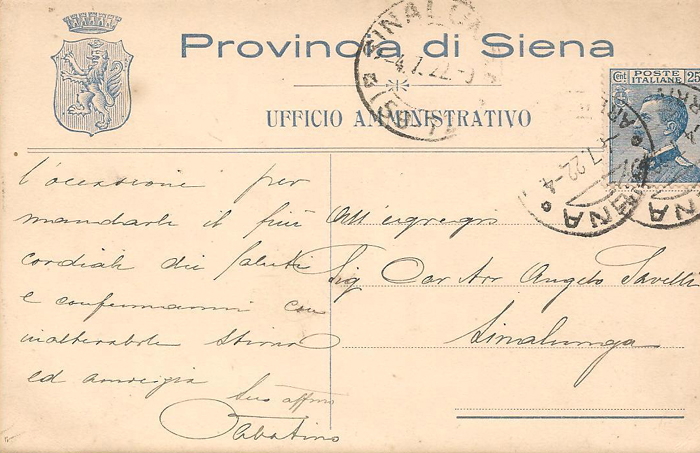 Provincia di Siena
UFFICIO AMMINISTRATIVO
Cent POSTE ITALIANE 25
SINALUNGA
4.7.22
SIENA
-4.7.22.-4
l'occasione per
mandarle il più
cordiale dei saluti
e confermarmi con
inalterabile stima
ed amicizia
Suo affmo
Sabatino
All'egregio
Sig Cav Avv Angelo Savelli
Sinalunga